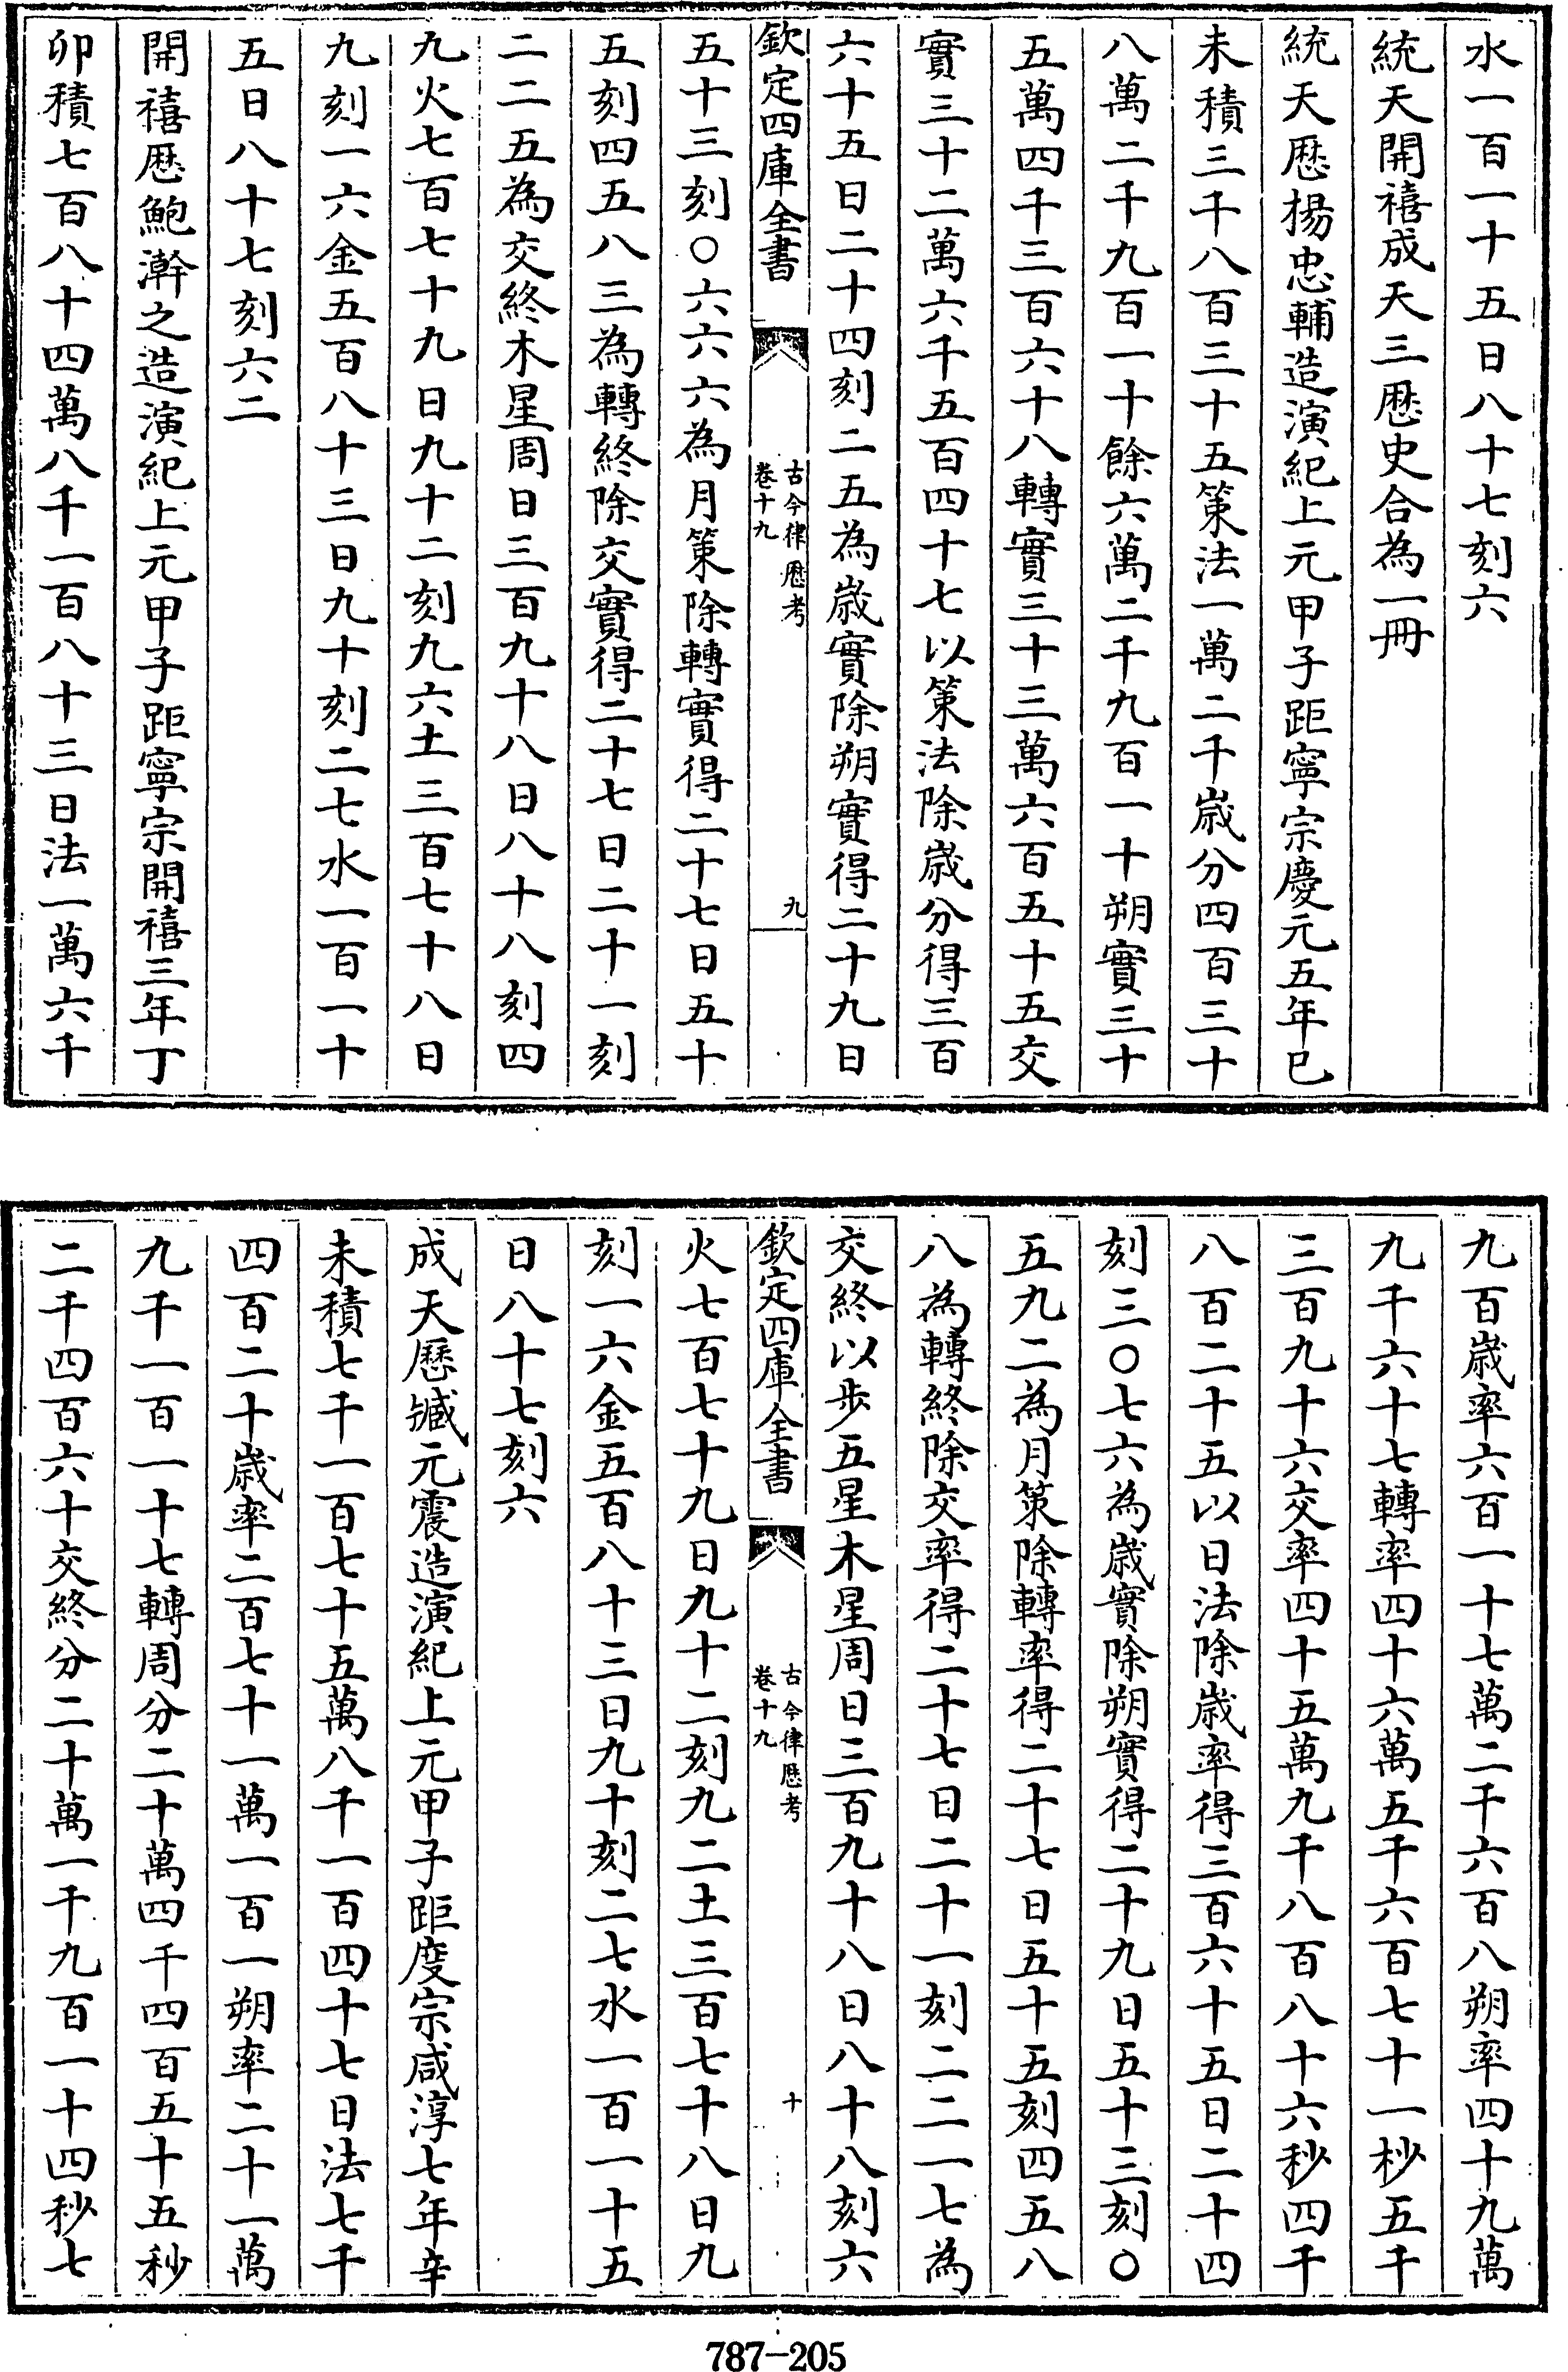 水一百一十五日八十七刻六
統天開禧成天三厯史合為一冊
統天厯楊忠輔造演紀上元甲子距寧宗慶元五年巳
未積三千八百三十五策法一萬二千歲分四百三十
八萬二千九百一十餘六萬二千九百一十朔實三十
五萬四千三百六十八轉實三十三萬六百五十五交
實三十二萬六千五百四十七以策法除歲分得三百
六十五日二十四刻二五為歲實除朔實得二十九日
欽定四庫全書
古今律厯考
卷十九
九
五十三刻〇六六六為月策除轉實得二十七日五十
五刻四五八三為轉終除交實得二十七日二十一刻
二二五為交終木星周日三百九十八日八十八刻四
九火七百七十九日九十二刻九六土三百七十八日
九刻一六金五百八十三日九十刻二七水一百一十
五日八十七刻六二
開禧厯鮑澣之造演紀上元甲子距寧宗開禧三年丁
卯積七百八十四萬八千一百八十三日法一萬六千
九百歲率六百一十七萬二千六百八朔率四十九萬
九千六十七轉率四十六萬五千六百七十一杪五千
三百九十六交率四十五萬九千八百八十六秒四千
八百二十五以日法除歲率得三百六十五日二十四
刻三〇七六為歲實除朔實得二十九日五十三刻〇
五九二為月策除轉率得二十七日五十五刻四五八
八為轉終除交率得二十七日二十一刻二二一七為
交終以步五星木星周日三百九十八日八十八刻六
欽定四庫全書
古今律厯考
卷十九
十
火七百七十九日九十二刻九二土三百七十八日九
刻一六金五百八十三日九十刻二七水一百一十五
日八十七刻六
成天厯臧元震造演紀上元甲子距度宗咸淳七年辛
未積七千一百七十五萬八千一百四十七日法七千
四百二十歲率二百七十一萬一百一朔率二十一萬
九千一百一十七轉周分二十萬四千四百五十五秒
二千四百六十交終分二十萬一千九百一十四秒七
787-205